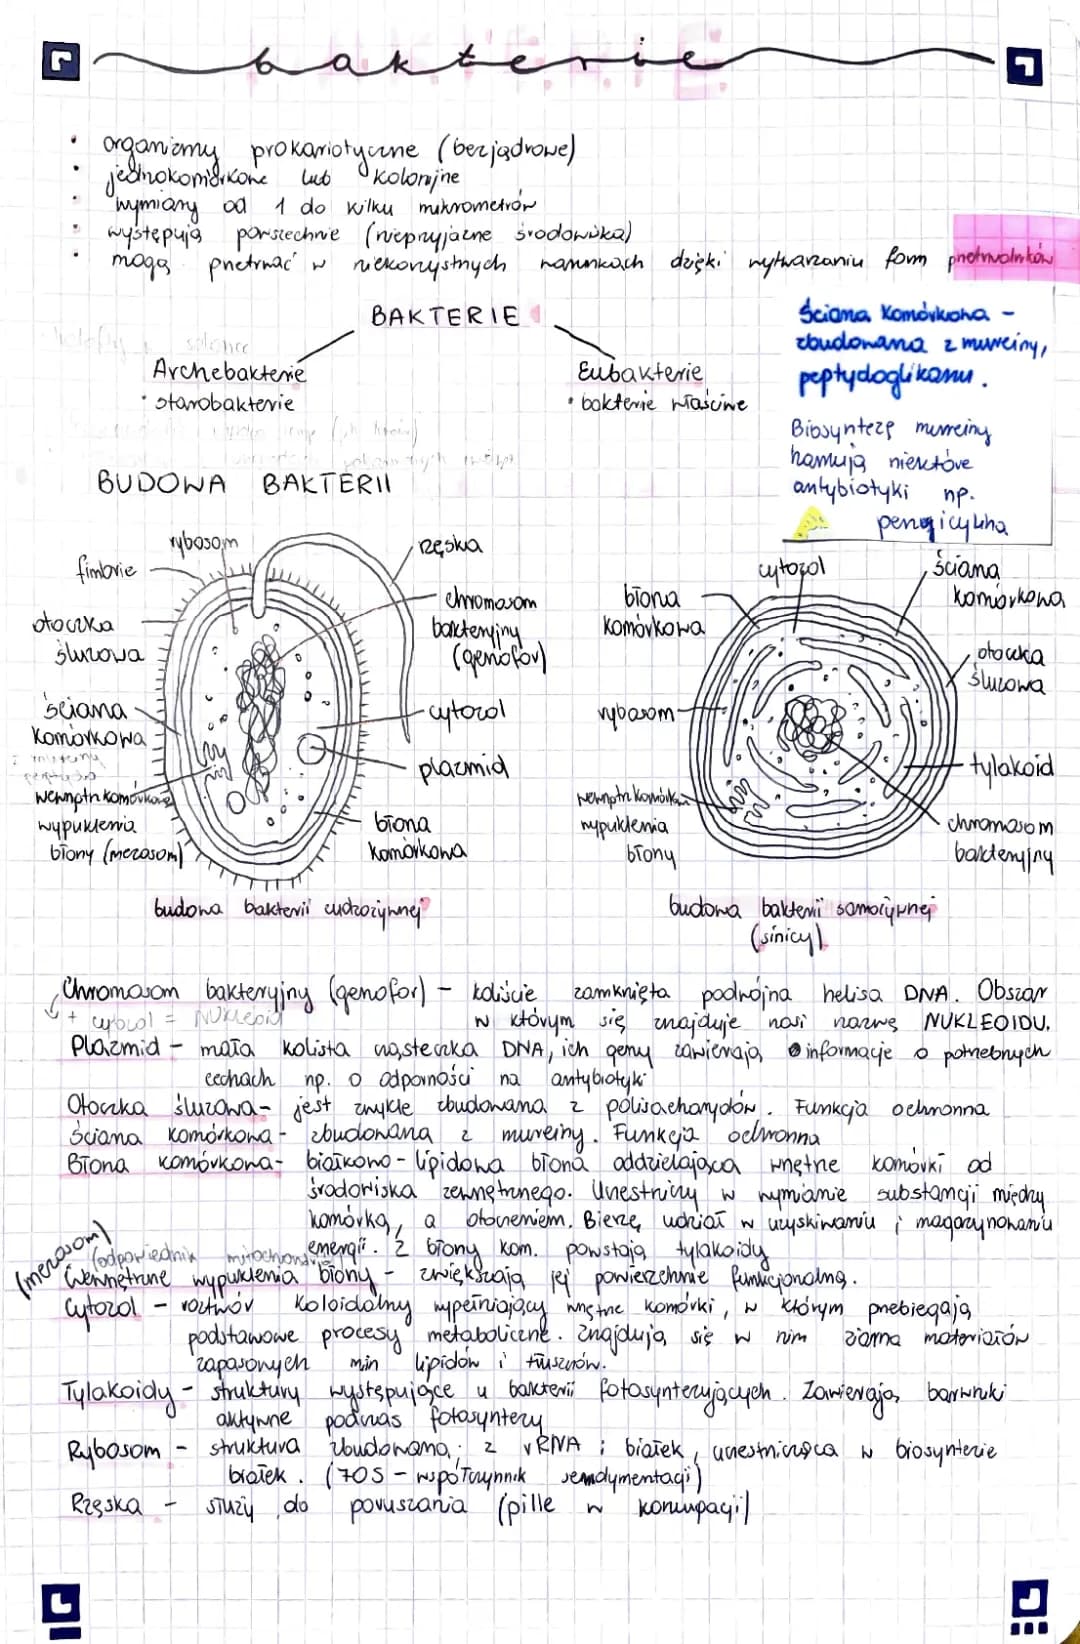 bakterie
• organizmy prokariotyczne (bezjądrowe)
• jednokomórkowe lub kolonijne
• wymiary od 1 do kilku mikrometrów
• występują powszechnie (nieprzyjazne środowiska)
• mogą przetrwać w niekorzystnych warunkach dzięki wytwarzaniu form przetrwalników
BAKTERIE
Archebakterie
• starobakterie
Eubakterie
• bakterie właściwe
Ściana komórkowa -
zbudowana z mureiny,
peptydoglikanu.
Biosyntezę mureiny
hamują niektóre
antybiotyki np.
BUDOWA BAKTERII
rybosom
fimbrie
otoczka
śluzowa
ściana
komórkowa
wewnątrzkomórkowe
wypuklenia
błony (mezosom)
rzęska
chromosom
bakteryjny
(genofor)
cytozol
plazmid
błona
komórkowa
budowa bakterii cudzożywnej
cytozol
błona
komórkowa
rybosom
wypuklenia
błony
ściana
komórkowa
otoczka
śluzowa
tylakoid
chromosom
bakteryjny
budowa bakterii samożywnej
(sinicy)
Chromosom bakteryjny (genofor) - koliście zamknięta podwójna helisa DNA. Obszar
+ cytozol = nukleoid
w którym się znajduje nosi nazwę NUKLEOIDU.
Plazmid - mała kolista cząsteczka DNA, ich geny zawierają informacje o potrzebnych
cechach np. o odporności na antybiotyki
Otoczka śluzowa - jest zwykle zbudowana z polisacharydów. Funkcja ochronna
Ściana komórkowa - zbudowana z mureiny. Funkcja ochronna
Błona komórkowa - białkowo-lipidowa błona oddzielająca wnętrze komórki od
środowiska zewnętrznego. Uczestniczy w wymianie substancji między
komórką, a otoczeniem. Bierze udział w uzyskiwaniu i magazynowaniu
energii. Z błony kom. powstają tylakoidy
(mezosom) (odpowiednik mitochondrium
Wewnętrzne wypuklenia błony - zwiększają jej powierzchnie funkcjonalną.
Cytozol - roztwór koloidalny wypełniający wnętrze komórki, w którym przebiegają
podstawowe procesy metaboliczne. Znajdują się w nim ziarna materiałów
zapasonych min lipidów i tłuszczów.
Tylakoidy - struktury występujące u bakterii fotosyntezujących. Zawierają barwniki
aktywne podczas fotosyntezy
Rybosom - struktura zbudowana z rRNA i białek, uczestnicząca w biosyntezie
białek. (70S - współczynnik sendymentacji)
Rzęska - służy do poruszania (pille w koniugacji)